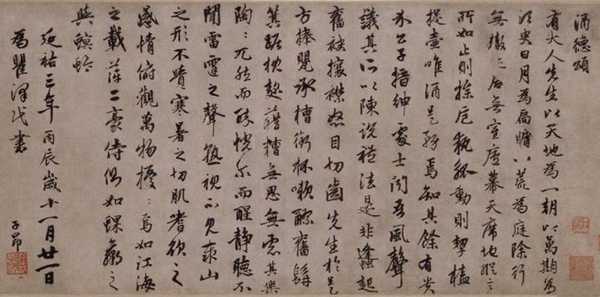 酒德頌
有大人先生以天地為一朝以萬期為
須臾日月為扃牖八荒為庭除行
無轍迹居無室廬幕天席地縱意
所如止則操卮執觚動則挈榼
提壺唯酒是務焉知其餘有貴
介公子搢紳處士聞吾風聲
議其所以陳說禮法是非蠭起
奮袂攘襟怒目切齒先生於是
方捧甖承槽銜杯漱醪奮髯
箕踞枕麴藉糟無思無慮其樂
陶:兀然而醉恍爾而醒靜聽不
聞雷霆之聲孰視不見泰山
之形不覺寒暑之切肌嗜欲之
感情俯觀萬物擾:焉如江海
之載萍二豪侍側如蜾蠃之
與螟蛉
延祐三年丙辰歲十一月廿一日
為瞿澤民書
子昂